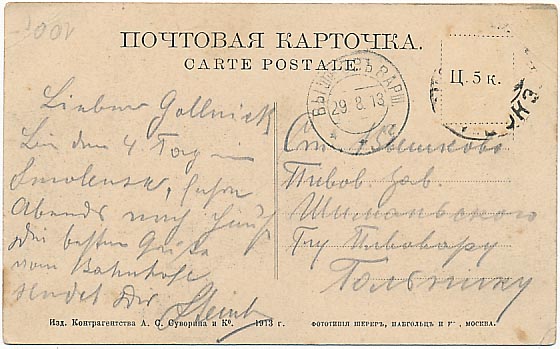 1001
ПОЧТОВАЯ КАРТОЧКА.
CARTE POSTALE.
ВЫШКОВЪ ВАРШ
29 8 13
Ц. 5 к.
Lieber Gollnick
Bin den 4 Tag in
Smolensk, fahre
Abends nach
Die besten Grüße
vom Bahnhofe
sendet Dir
Ст. Вышково
Пивов. Зав.
Шиманьского
Гну Пивовару
Гольнику
Изд. Контрагентства А. С. Суворина и К⁰. 1913 г.
ФОТОТИПІЯ ШЕРЕРЪ, НАБГОЛЬЦЪ и К⁰, МОСКВА.